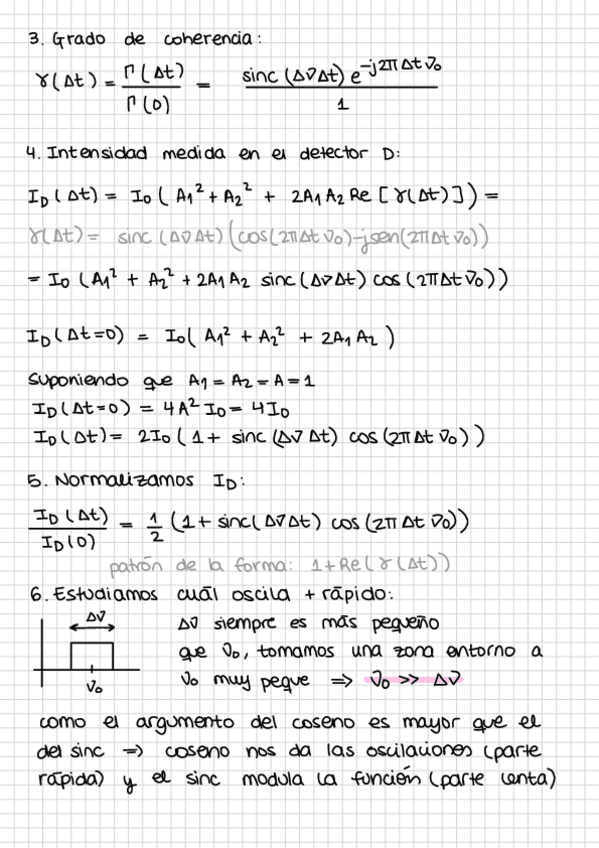 3. Grado de coherencia:
γ(Δt) = Γ(Δt) / Γ(0) = sinc(Δν̄Δt) e^-j2πΔtν̄₀ / 1
4. Intensidad medida en el detector D:
I_D(Δt) = I₀(A₁² + A₂² + 2A₁A₂ Re[γ(Δt)]) =
γ(Δt) = sinc(Δν̄Δt)(cos(2πΔtν̄₀)-jsen(2πΔtν̄₀))
= I₀(A₁² + A₂² + 2A₁A₂ sinc(Δν̄Δt) cos(2πΔtν̄₀))
I_D(Δt=0) = I₀(A₁² + A₂² + 2A₁A₂)
Suponiendo que A₁ = A₂ = A = 1
I_D(Δt=0) = 4A² I₀ = 4I₀
I_D(Δt) = 2I₀(1 + sinc(Δν̄Δt) cos(2πΔtν̄₀))
5. Normalizamos I_D:
I_D(Δt) / I_D(0) = 1/2 (1 + sinc(Δν̄Δt) cos(2πΔtν̄₀))
patrón de la forma: 1+Re(γ(Δt))
6. Estudiamos cuál oscila + rápido:
Δν̄
ν̄₀
Δν̄ siempre es más pequeño
que ν̄₀, tomamos una zona entorno a
ν̄₀ muy peque ⇒ ν̄₀ >> Δν̄
como el argumento del coseno es mayor que el
del sinc ⇒ coseno nos da las oscilaciones (parte
rápida) y el sinc modula la función (parte lenta)